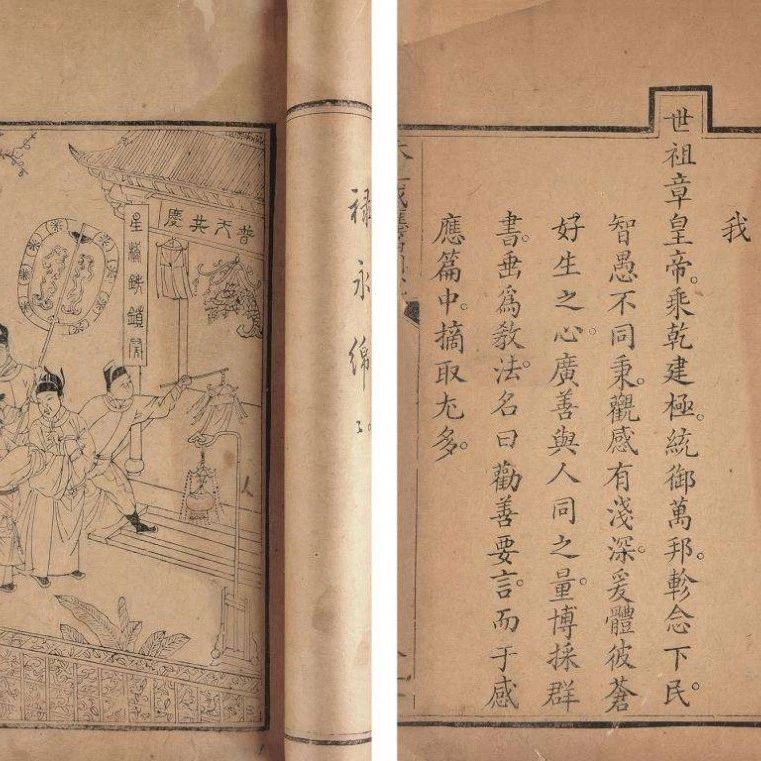 我
世祖章皇帝。乘乾建極。統御萬邦。軫念下民。
智愚不同秉。觀感有淺深。爰體彼蒼
好生之心。廣善與人同之量。博採群
書。垂爲教法。名曰勸善要言。而于感
應篇中。摘取尤多。
祿永綿
普天共慶
星橋鉄鎖開
人